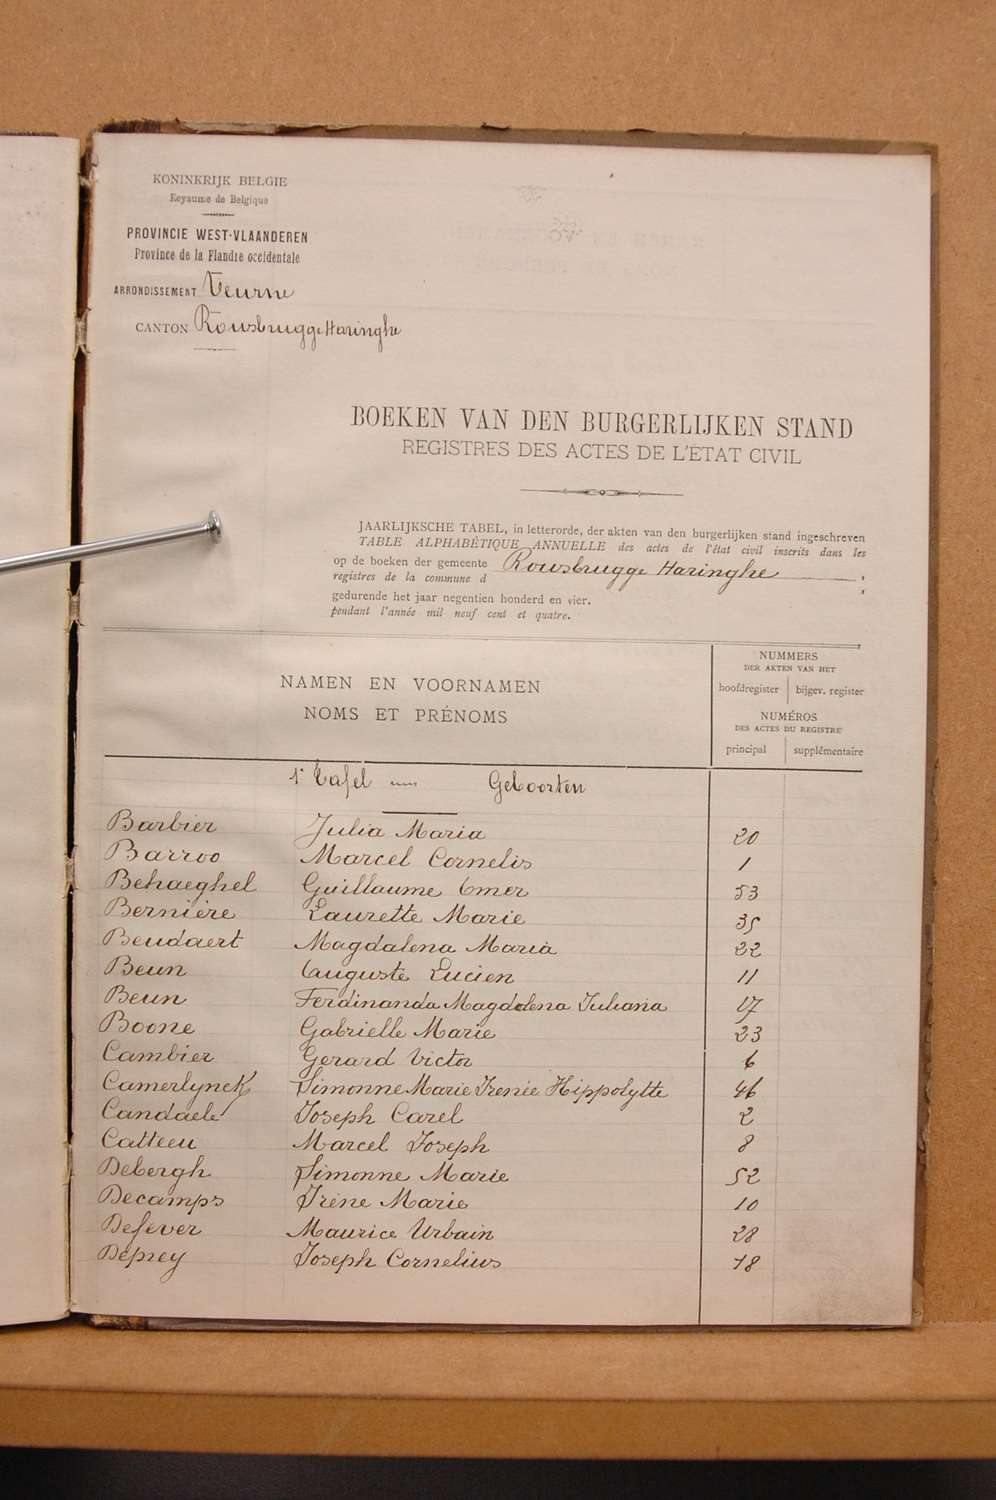 KONINKRIJK BELGIE
Royaume de Belgique
PROVINCIE WEST-VLAANDEREN
Province de la Flandre occidentale
ARRONDISSEMENT Veurne
CANTON Rousbrugge Haringhe
BOEKEN VAN DEN BURGERLIJKEN STAND
REGISTRES DES ACTES DE L'ÉTAT CIVIL
JAARLIJKSCHE TABEL, in letterorde, der akten van den burgerlijken stand ingeschreven
TABLE ALPHABÉTIQUE ANNUELLE des actes de l'état civil inscrits dans les
op de boeken der gemeente Rousbrugge Haringhe
registres de la commune d
gedurende het jaar negentien honderd en vier.
pendant l'année mil neuf cent et quatre.
NAMEN EN VOORNAMEN
NOMS ET PRÉNOMS
NUMMERS
DER AKTEN VAN HET
hoofdregister bijgev. register
NUMÉROS
DES ACTES DU REGISTRE
principal supplémentaire
1e Tafel Geboorten
Barbier Julia Maria 20
Barroo Marcel Cornelis 1
Behaeghel Guillaume Omer 53
Bernière Laurette Marie 35
Beudaert Magdalena Maria 22
Beun Auguste Lucien 11
Beun Ferdinanda Magdalena Juliana 17
Boone Gabrielle Marie 23
Cambier Gerard Victor 6
Camerlynck Simonne Marie Irenée Hippolytte 46
Candaele Joseph Carel 2
Catteeu Marcel Joseph 8
Debergh Simonne Marie 52
Decamps Irène Marie 10
Defever Maurice Urbain 28
Deprey Joseph Cornelius 18